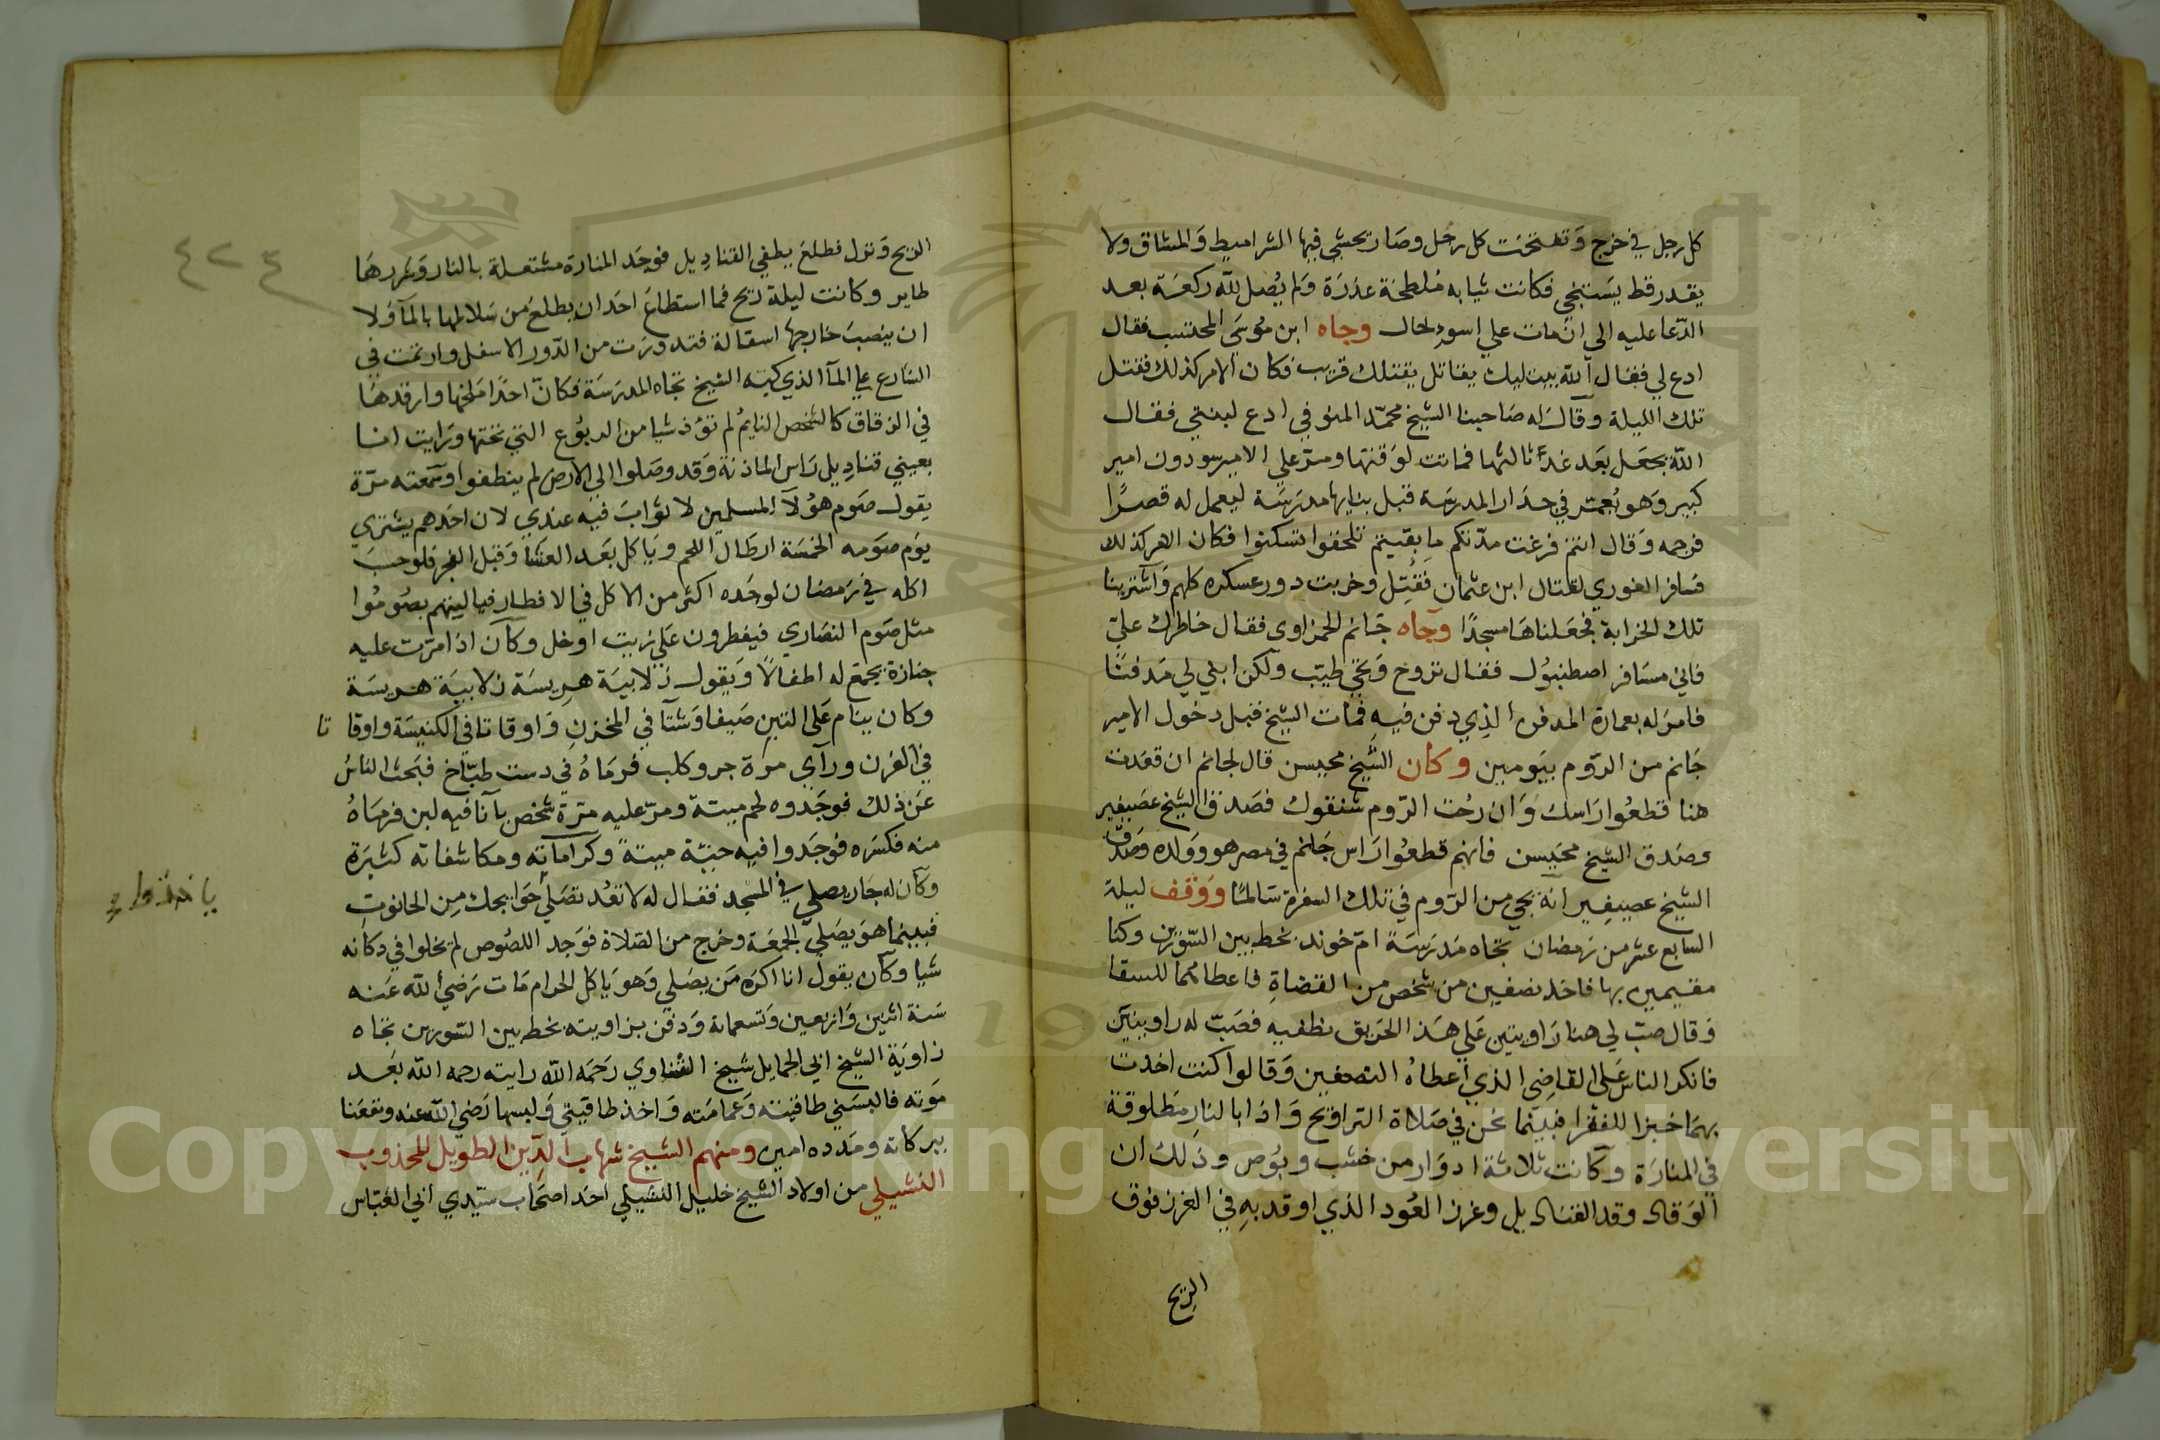 كل رجل في خرج وتفتحت كل رجل وصار يحشي فيها الشراميط والمشاق ولا
يقدر قط يستنجي فكانت ثيابه ملطخة عذرة ولم يصل لله ركعة بعد
الدعا عليه الي ان مات علي اسوء حال وجاه ابن موسي المحتسب فقال
ادع لي فقال الله يبت ليك بقاتل يقتلك قريب فكان الامر كذلك فقتل
تلك الليلة وقال له صاحبنا الشيخ محمد المنوفي ادع لبنتي فقال
الله يجعل بعد غد ثالثها فماتت لوقتها ومر علي الامير سودون امير
كبير وهو يعمر في جدار المدرسة قبل بنايها مدرسة ليعمل له قصرا
فرجمه وقال انتم فرغت مدتكم ما بقيتم تلحقوا تسكنوا فكان الامر كذلك
فسافر الغوري لقتال ابن عثمان فقتل وخربت دور عسكره كلهم واشترينا
تلك الخرابة فجعلناها مسجدا وجاه جانم الحمزاوي فقال خاطرك علي
فاني مسافر اصطنبول فقال تروح وتجي طيب ولكن ابني لي مدفنا
فامر له بعمارة المدفن الذي دفن فيه فمات الشيخ قبل دخول الامير
جانم من الروم بيومين وكان الشيخ محيسن قال لجانم ان قعدت
هنا قطعوا راسك وان رحت الروم شنقوك فصدق الشيخ عصيفير
وصدق الشيخ محيسن فانهم قطعوا راس جانم في مصر هو وولده وصدق
الشيخ عصيفير انه يجي من الروم في تلك السفرة سالما ووقف ليلة
السابع عشر من رمضان تجاه مدرسة ام خوند بخط بين السورين وكنا
مقيمين بها فاخذ نصفين من شخص من القضاة فاعطاهما للسقا
وقال صب لي هنا راويتين علي هذا الحريق نطفيه فصب له راويتين
فانكر الناس علي القاضي الذي اعطاه النصفين وقالوا كنت اخذت
بهما خبزا للفقرا فبينما نحن في صلاة التراويح واذا بالنار مطلوقة
في المنارة وكانت ثلاثة ادوار من خشب وبوص وذلك ان
الوقاد وقد القناديل وغرز العود الذي اوقد به في الغرز فوق
الريح
الريح ونزل فطلع يطفي القناديل فوجد المنارة مشتعلة بالنار وشررها
طاير وكانت ليلة ريح فما استطاع احد ان يطلع من سلالمها بالمآ ولا
ان ينصب خارجها اسقالة فتدورت من الدور الاسفل وارتمت في
الشارع علي المآ الذي كبه الشيخ تجاه المدرسة فكان احدا مخها وارقدها
في الزقاق كالشخص النايم لم تؤذ شيا من الربوع التي تحتها ورايت انا
بعيني قناديل راس الماذنة وقد وصلوا الي الارض لم ينطفوا وسمعته مرة
يقول صوم هؤلآ المسلمين لا ثواب فيه عندي لان احدهم يشتري
يوم صومه الخمسة ارطال اللحم وياكل بعد العشا وقبل الفجر فلو حب
اكله في رمضان لوجده اكثر من الاكل في الافطار فياليتهم يصوموا
مثل صوم النصاري فيفطرون علي زيت او خل وكان اذا مرت عليه
جنازة يجمع له اطفالا ويقول زلابية هريسة زلابية هريسة
وكان ينام علي التبن صيفا وشتآ في المخزن واوقاتا في الكنيسة واوقاتا
في الفرن ورآي مرة جرو كلب فرماه في دست طباخ فبحث الناس
عن ذلك فوجدوه لحم ميتة ومر عليه مرة شخص بآنا فيه لبن فرماه
منه فكسره فوجدوا فيه حية ميتة وكراماته ومكاشفاته كثيرة
وكان له جار يصلي في المسجد فقال له لا تعد تصلي حوايجك من الحانوت
فبينما هو يصلي الجمعة وخرج من الصلاة فوجد اللصوص لم يخلوا في دكانه
شيا وكان يقول انا اكره من يصلي وهو ياكل الحرام مات رضي الله عنه
سنة اثنين واربعين وتسعماة ودفن بزاويته بخط بين السورين تجاه
زاوية الشيخ ابي الحمايل شيخ الشناوي رحمه الله رايته رحمه الله بعد
موته فالبسني طاقيته وعمامته واخذ طاقيتي ولبسها رضي الله عنه ونفعنا
ببركاته ومدده امين ومنهم الشيخ شهاب الدين الطويل المجذوب
النشيلي من اولاد الشيخ خليل النشيلي احد اصحاب سيدي ابي العباس
٤٢٤
Copyright © King Saud University
1957